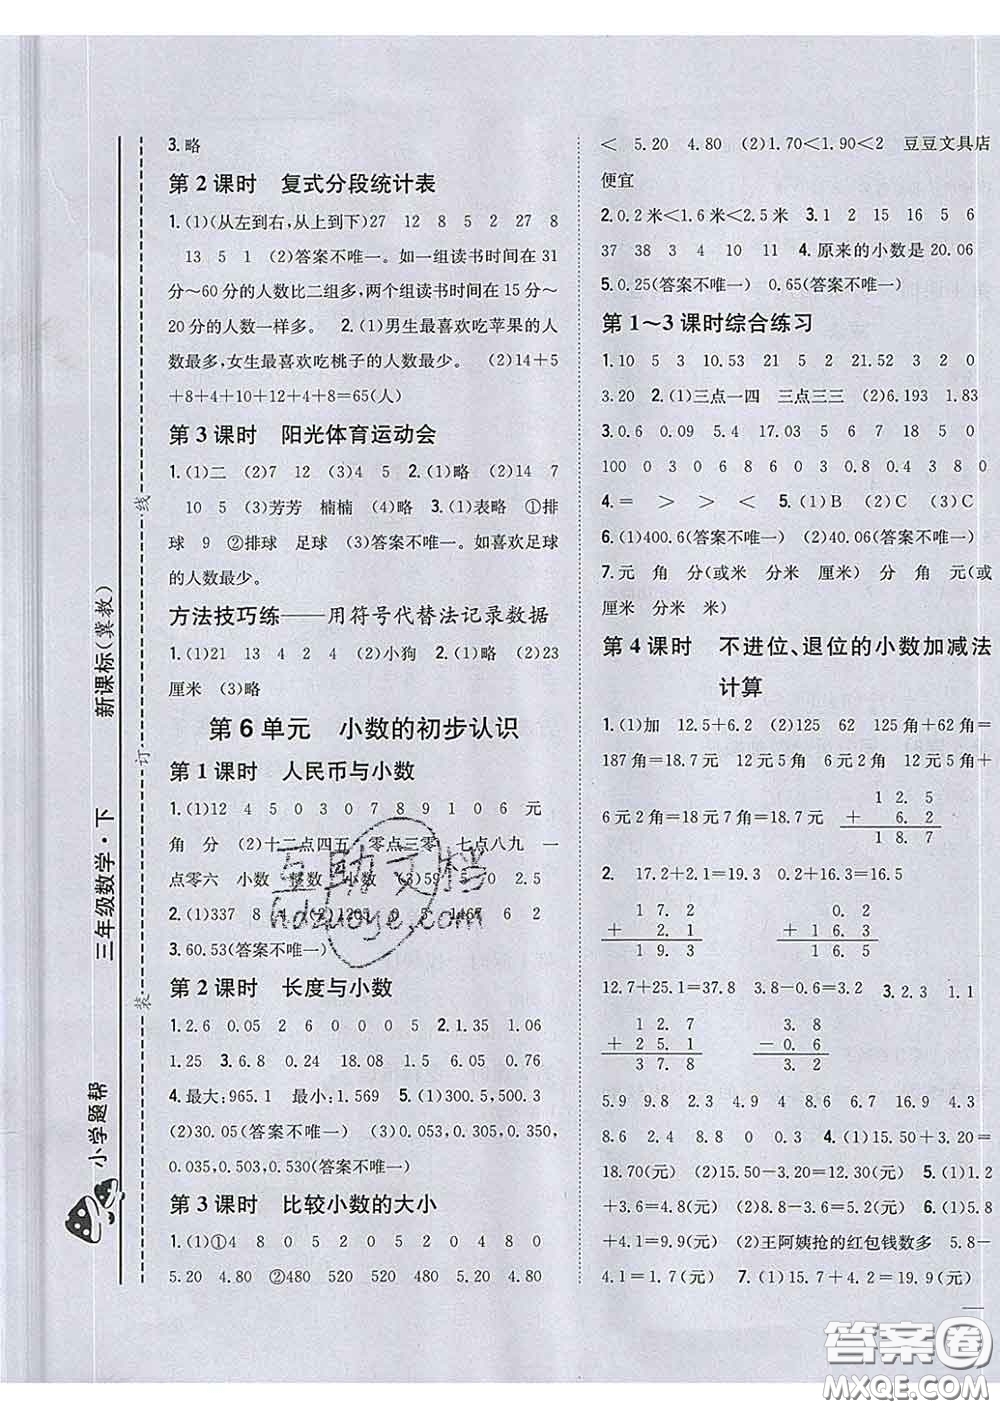 3.略
第2课时 复式分段统计表
1.(1)(从左到右,从上到下)27 12 8 5 2 27 8
13 5 1 (2)答案不唯一。如一组读书时间在31
分~60分的人数比二组多,两个组读书时间在15分~
20分的人数一样多。 2.(1)男生最喜欢吃苹果的人
数最多,女生最喜欢吃桃子的人数最少。 (2)14+5
+8+4+10+12+4+8=65(人)
第3课时 阳光体育运动会
1.(1)二 (2)7 12 (3)4 5 2.(1)略 (2)14 7
10 5 (3)芳芳 楠楠 (4)略 3.(1)表略 ①排
球 9 ②排球 足球 (3)答案不唯一。如喜欢足球
的人数最少。
方法技巧练——用符号代替法记录数据
1.(1)21 13 4 2 4 (2)小狗 2.(1)略 (2)23
厘米 (3)略
第6单元 小数的初步认识
第1课时 人民币与小数
1.(1)12 4 5 0 3 0 7 8 9 1 0 6 元
角 分 (2)十二点四五 零点三零 七点八九 一
点零六 小数 整数 小数 (3)59 7 0 2.5
2.(1)337 8 4 (2)1205 0 5 1467 6 2
3.60.53(答案不唯一)
第2课时 长度与小数
1.2.6 0.05 2 6 0 0 0 5 2.1.35 1.06
1.25 3.6.8 0.24 18.08 1.05 6.06 0.76
4.最大:965.1 最小:1.569 5.(1)300.5,500.3
(2)30.05(答案不唯一) (3)0.053,0.305,0.350,
0.035,0.503,0.530(答案不唯一)
第3课时 比较小数的大小
1.(1)①4 8 0 5 2 0 5 2 0 4 8 0
5.20 4.80 ②480 520 520 480 5.20 4.80
< 5.20 4.80 (2)1.70<1.90<2 豆豆文具店
便宜
2.0.2米<1.6米<2.5米 3.1 2 15 16 5 6
37 38 3 4 10 11 4.原来的小数是20.06
5.0.25(答案不唯一) 0.65(答案不唯一)
第1~3课时综合练习
1.10 5 3 10.53 21 5 2 21.52 3 2 0
3.20 2.(1)三点一四 三点三三 (2)6.193 1.83
3.0.6 0.09 5.4 17.03 5 6 7 18 5 0
100 0 3 0 6 8 6 3 0.8 0.4 3 8 0
4.= > > < 5.(1)B (2)C (3)C
6.(1)400.6(答案不唯一) (2)40.06(答案不唯一)
7.元 角 分(或米 分米 厘米) 分 角 元(或
厘米 分米 米)
第4课时 不进位、退位的小数加减法
计算
1.(1)加 12.5+6.2 (2)125 62 125角+62角=
187角=18.7元 12元5角=12.5元 12元5角+
6元2角=18元7角=18.7元
12.5
+ 6.2
18.7
2. 17.2+2.1=19.3 0.2+16.3=16.5
17.2
+ 2.1
19.3
0.2
+16.3
16.5
12.7+25.1=37.8 3.8-0.6=3.2 3.2.3 1.1
12.7
+25.1
37.8
3.8
-0.6
3.2
5.9 9.8 2.4 4 8.6 6.7 16.9 4.9
8.6 2.4 8.8 0 2 0.4 4.(1)15.50+3.20=
18.70(元) (2)15.50-3.20=12.30(元) 5.(1)1.2
+3.6=4.8(元) (2)3.6-1.2=2.4(元) 6.(1)5.8
+4.1=9.9(元) (2)王阿姨抢的红包钱数多 5.8-
4.1=1.7(元) 7.(1)15.7+4.2=19.9(元)
小学题帮 三年级数学·下 新课标(冀教)
装
订
线
互助文档
hdzuoye.com
答案圈
MXQE.COM